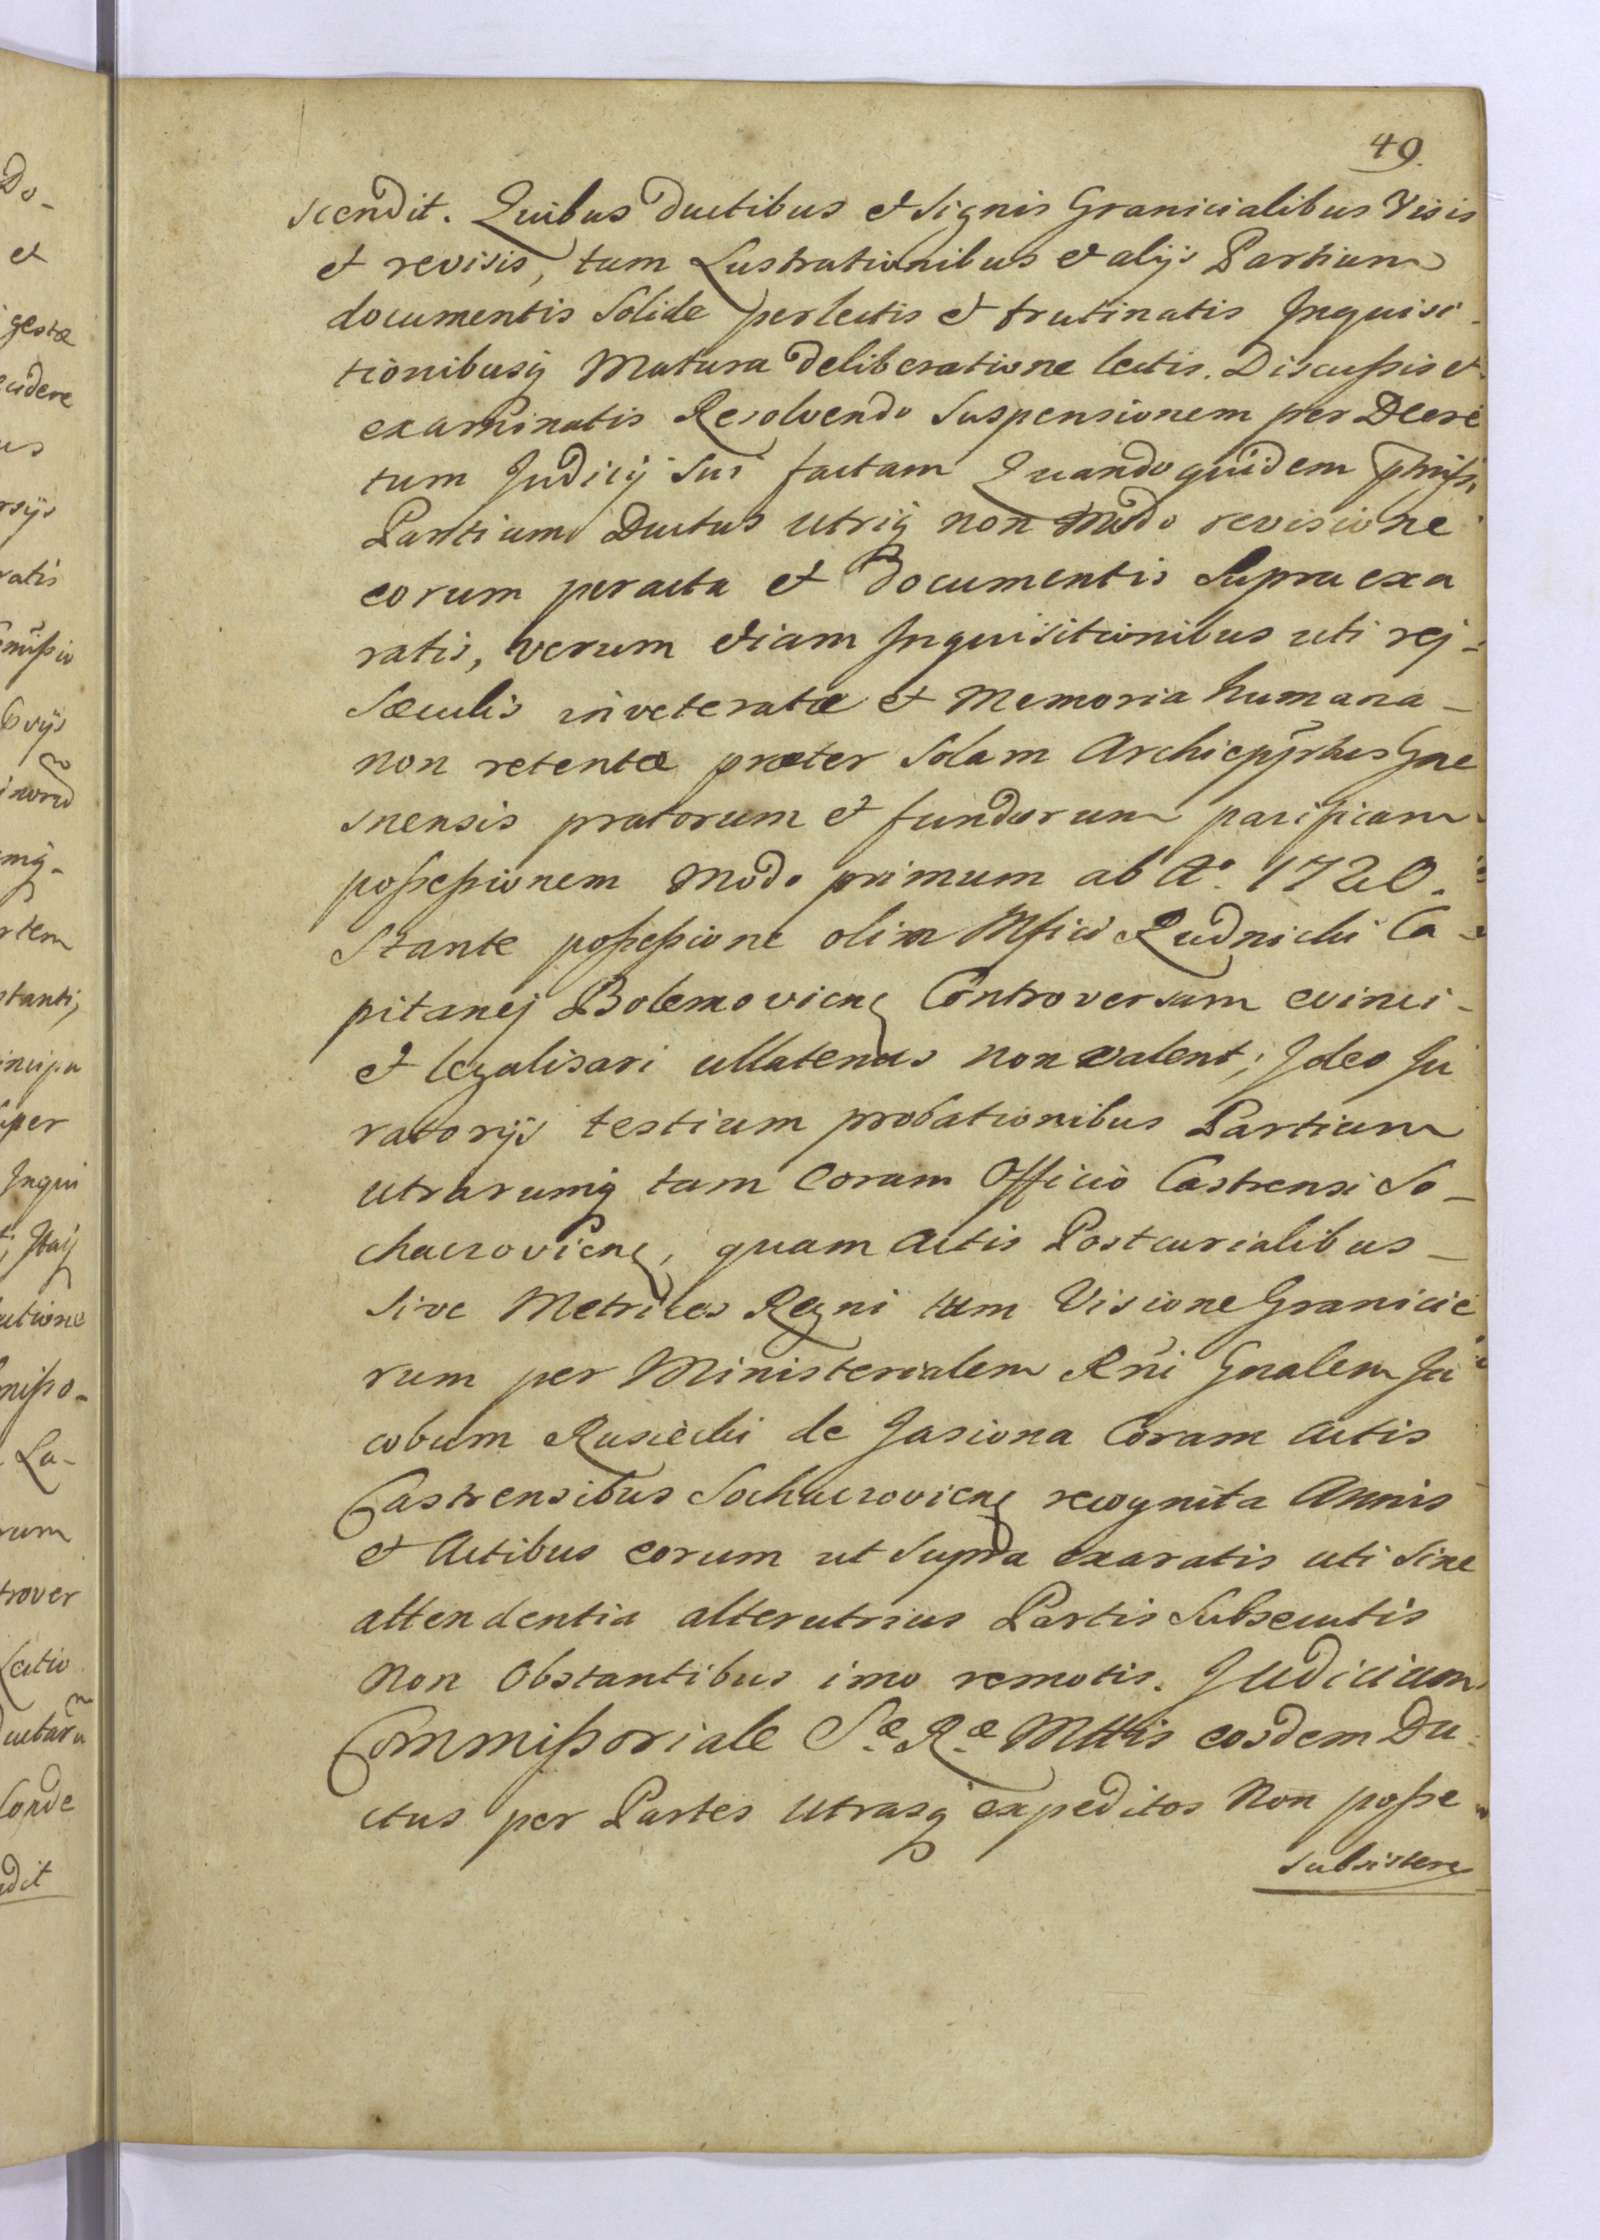 49.
scendit. Quibus ductibus et signis Granicialibus Visis
et revisis, tum Lustrationibus et alijs Partium
documentis solide perlectis et trutinatis Inquisi-
tionibusq Matura deliberatione lectis. Discußis et
examinatis Resolvendo Suspensionem per Decre
tum Judicij sui factam Quandoquidem
Partium Ductus utriq non modo revisione
eorum peracta et Documentis Supra exa
ratis, verum etiam Inquisitionibus uti rej-
Sæculis inveteratæ et Memoria humana-
non retentæ præter Solam Gne
snensis pratorum et fundorum pacificam
poßeßionem Modo primum ab Aº. 1720.
Stante poßeßione olim Mfici Rudnicki Ca-
pitanej Bolemovicen Controversam evinci-
et legalisari ullatenus non valent; Ideo Ju
ratorijs testium probationibus Partium
utrarumq tam Coram Officio Castrensi So-
chaczovicen, quam Actis Postcurialibus-
sive Metrices Regni tum Visione Granicie
rum per Ministerialem Rni Gnalem Ja
cobum Rusiecki de Jasiona Coram Actis
Castrensibus Sochaczovicen recognita Annis
et Actibus eorum ut supra exaratis uti sine
attendentia alterutrius Partis Subsecutis
Non Obstantibus imo remotis. Judicium
Commißoriale Sæ Ræ Mttis eosdem Du-
ctus per Partes utrasq expeditos Non poße
subsistere
Do-
et
gestæ
cidere
us
rsijs
ratis
mißio
inord
mq-
rtem
stanti,
incipa
per
Inqui
utione
mißo-
La-
rum
trover
Lectio
Conde
dit